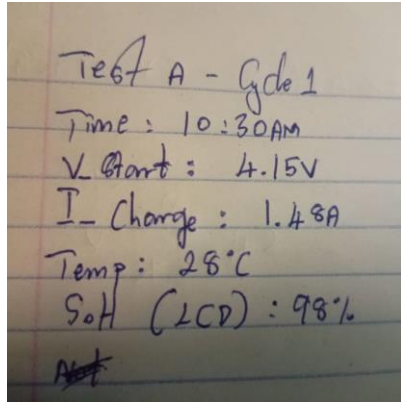 Test A - Cycle 1
Time : 10:30AM
V_Start : 4.15V
I_Charge : 1.48A
Temp : 28°C
SoH (LCD) : 98%